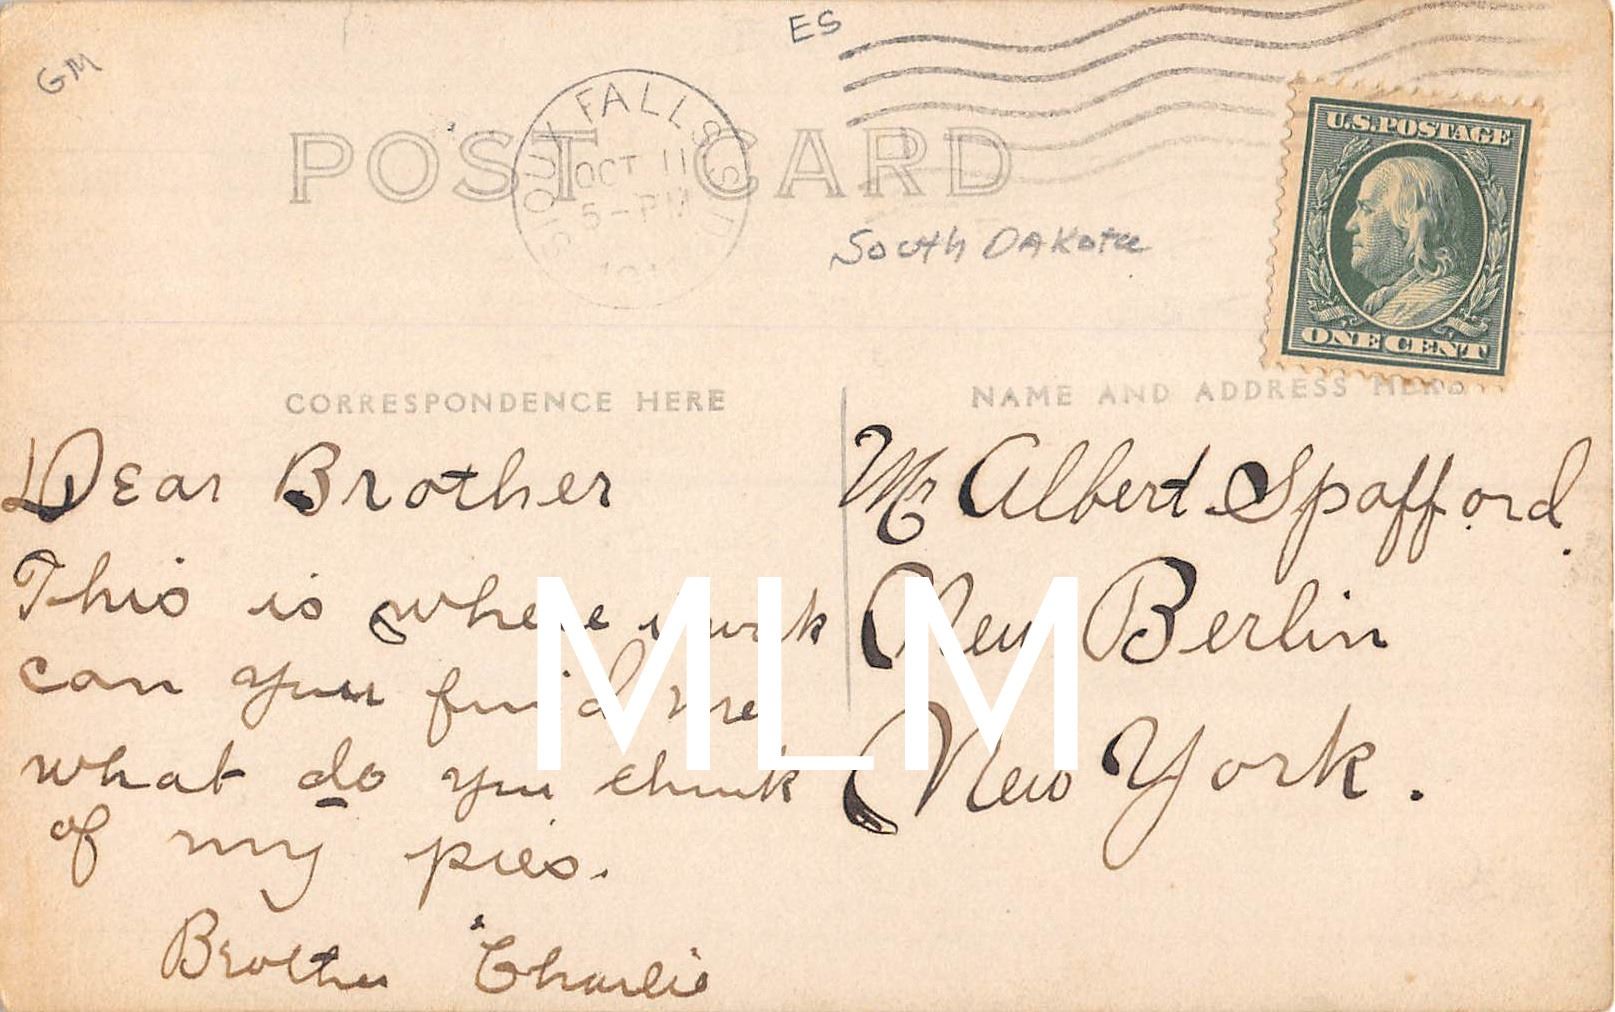 ES
GM
POST CARD
SIOUX FALLS S.D.
OCT 11
5-PM
South Dakota
U.S. POSTAGE
ONE CENT
CORRESPONDENCE HERE
NAME AND ADDRESS HERE
Dear Brother
This is where i work
can you find me
what do you think
of my pies.
Brother Charlie
Mr Albert Spafford.
New Berlin
New York.
MLM